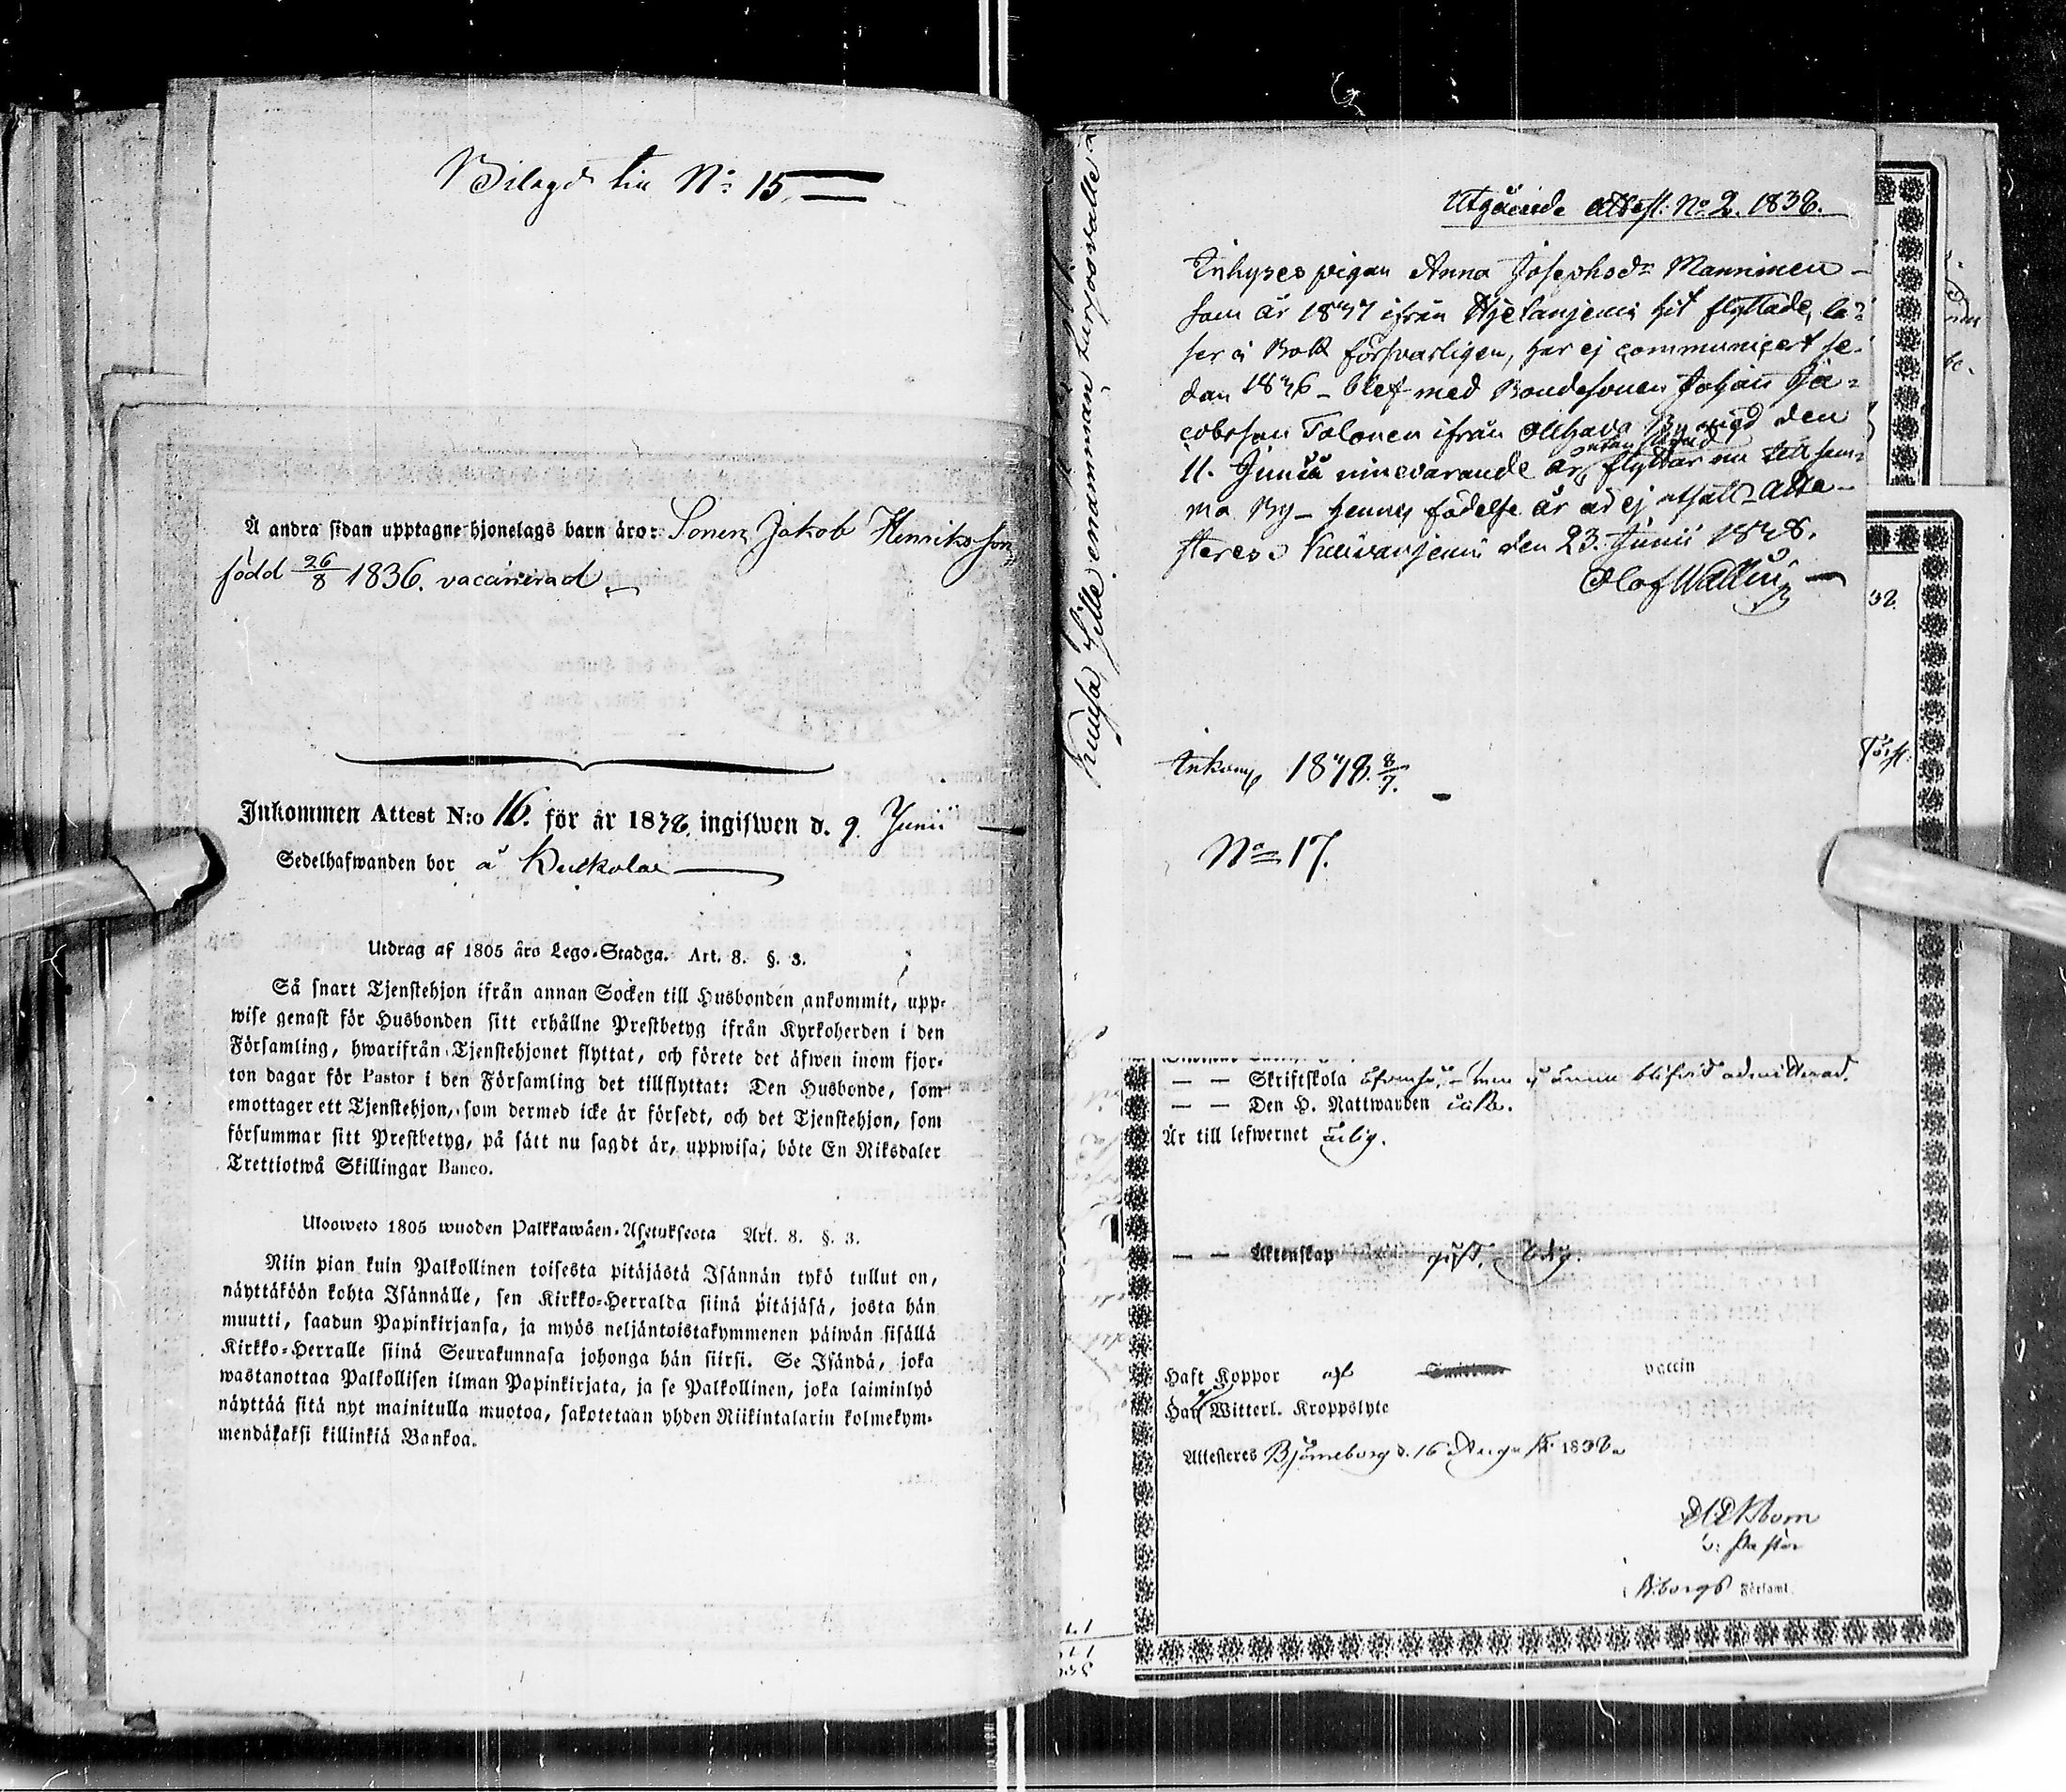 Bilagd till N:o 15.
Å andra sidan upptagne hjonelags barn äro: Sonen Jakob Henriksson
född 26/8 1836. vaccinerad
Inkommen Attest N:o 16. för år 1838. ingifwen d. 9. Junii
Sedelhafwanden bor å Kuckola
Utdrag af 1805 års Lego-Stadga. Art. 8. §. 3.
Så snart Tjenstehjon ifrån annan Socken till Husbonden ankommit, upp-
wise genast för Husbonden sitt erhållne Prestbetyg ifrån Kyrkoherden i den
Församling, hwarifrån Tjenstehjonet flyttat, och förete det äfwen inom fjor-
ton dagar för Pastor i den Församling det tillflyttat: Den Husbonde, som
emottager ett Tjenstehjon, som dermed icke är försedt, och det Tjenstehjon, som
försummar sitt Prestbetyg, på sätt nu sagdt är, uppwisa, böte En Riksdaler
Trettiotwå Skillingar Banco.
Ulosweto 1805 wuoden Palkkawäen-Asetuksesta Art. 8. §. 3.
Niin pian kuin Palkollinen toisesta pitäjästä Isännän tykö tullut on,
näyttäköön kohta Isännälle, sen Kirkko-Herralda siinä pitäjäsä, josta hän
muutti, saadun Papinkirjansa, ja myös neljäntoistakymmenen päiwän sisällä
Kirkko-Herralle siinä Seurakunnasa johonga hän siirsi. Se Isändä, joka
wastanottaa Palkollisen ilman Papinkirjata, ja se Palkollinen, joka laiminlyö
näyttää sitä nyt mainitulla muotoa, sakotetaan yhden Riikintalarin kolmekym-
mendäkaksi killinkiä Bankoa.
Utgående attest: No 2. 1838.
Inhyses pigan Anna Josephsdr Manninen
som år 1837 ifrån Hjetanjemi hit flyttade, lä-
ser i Bok försvarligen, har ej communicert se-
dan 1836 - blef med Bondesonen Johan Ja-
cobsson Tolonen ifrån Olhava By vigd den
11. Junii nuvarande år, utan flyttar nu till sam-
ma By - hennes födelse år är ej utsatt - Atte-
steres Kuivanjemi den 23. Junii 1838.
Olof Wallin
Inkom 1838 8/7.
No 17.
— — Skriftskola äfvenså, - men ej ännu blifvit admitterad.
— — Den H. Nattwarden icke.
Är till lefwernet ärlig.
— — Äktenskap ledig.
Haft Koppor af vaccin
Har Witterl. Kroppslyte
Attesteres Björneborg d. 16 Aug. 1838
v: Pastor
i B:borgs Församl.